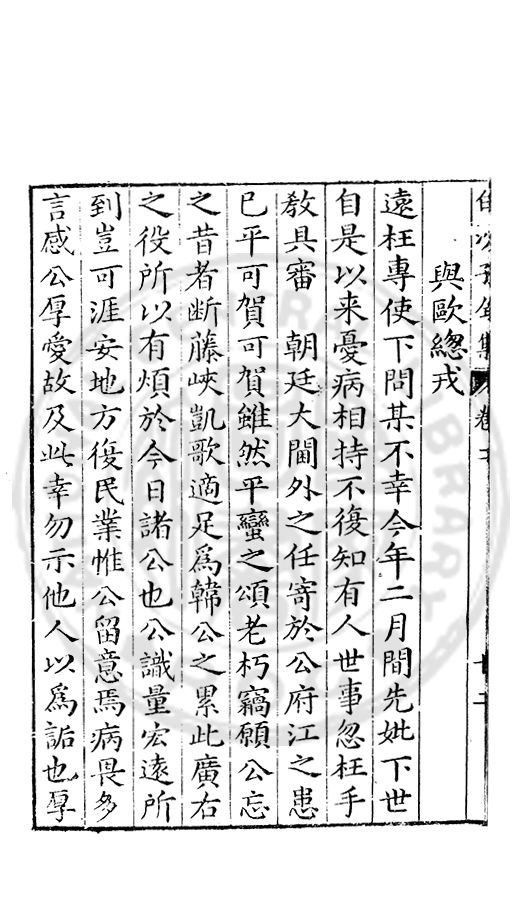 白沙子全集 卷
與歐總戎
遠枉專使下問某不幸今年二月間先妣下世
自是以来憂病相持不復知有人世事忽枉手
教具審 朝廷大閫外之任寄於公府江之患
已平可賀可賀雖然平蠻之頌老朽竊願公忘
之昔者断藤峽凱歌適足爲韓公之累此廣右
之役所以有煩於今日諸公也公識量宏遠所
到豈可涯安地方復民業惟公留意焉病畏多
言感公厚愛故及此幸勿示他人以爲詬也厚